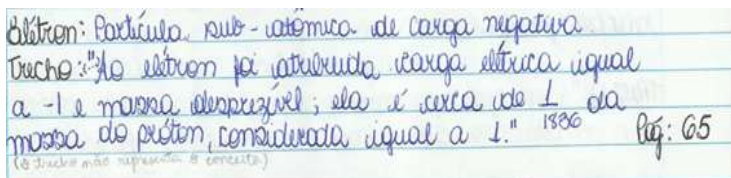 Elétron: Partícula sub-atômica de carga negativa
Trecho: "Ao elétron foi atribuída carga elétrica igual
a -1 e massa desprezível; ela é cerca de 1 da
massa do próton, considerada igual a 1." 1836 Pág: 65
(o trecho não representa o conceito)